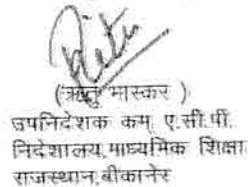 (ऋतु भास्कर )
उपनिदेशक कम् ए.सी.पी.
निदेशालय,माध्यमिक शिक्षा
राजस्थान,बीकानेर